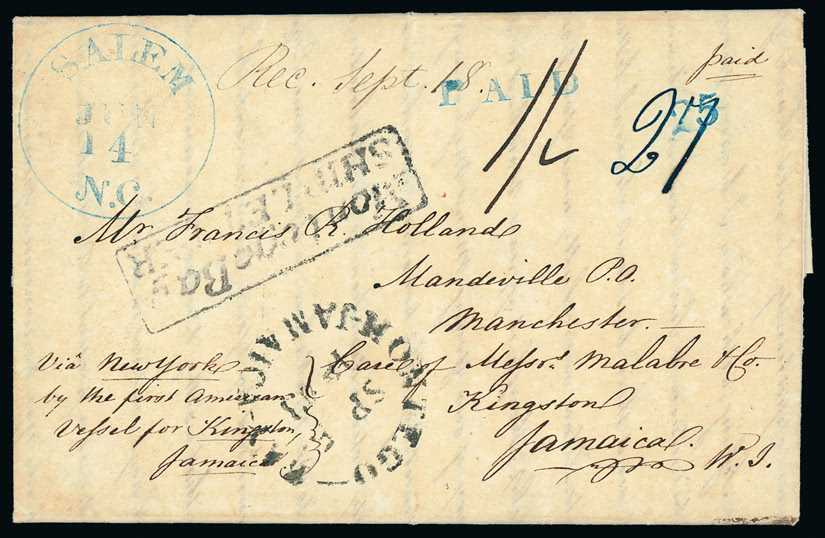 SALEM
JUN
14
N.C.
Rec. Sept. 18.
PAID
paid
1/2
27
25
Montego Bay
SHIP LE
Mr. Francis R. Holland
Mandeville P.O.
Manchester.
Care of Messrs. Malabre & Co.
Kingston
Jamaica. W.I.
Via New York
by the first American
Vessel for Kingston,
Jamaica
MONTEGO
SP